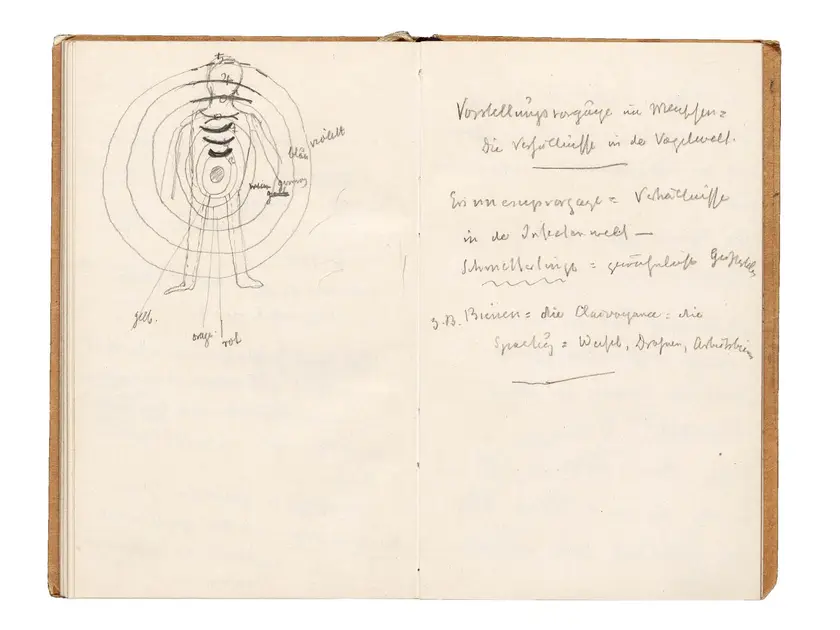 ♄
♃
blau violett
grün
gelb.
orange
rot
Vorstellungsvorgänge im Menschen =
die Verhältnisse in der Vogelwelt.
Erinnerungsvorgänge = Verhältnisse
in der Insektenwelt —
Schmetterlinge =
z.B. Bienen = die Clairvoyance = die
= Weisel, Drohnen, Arbeitsbienen